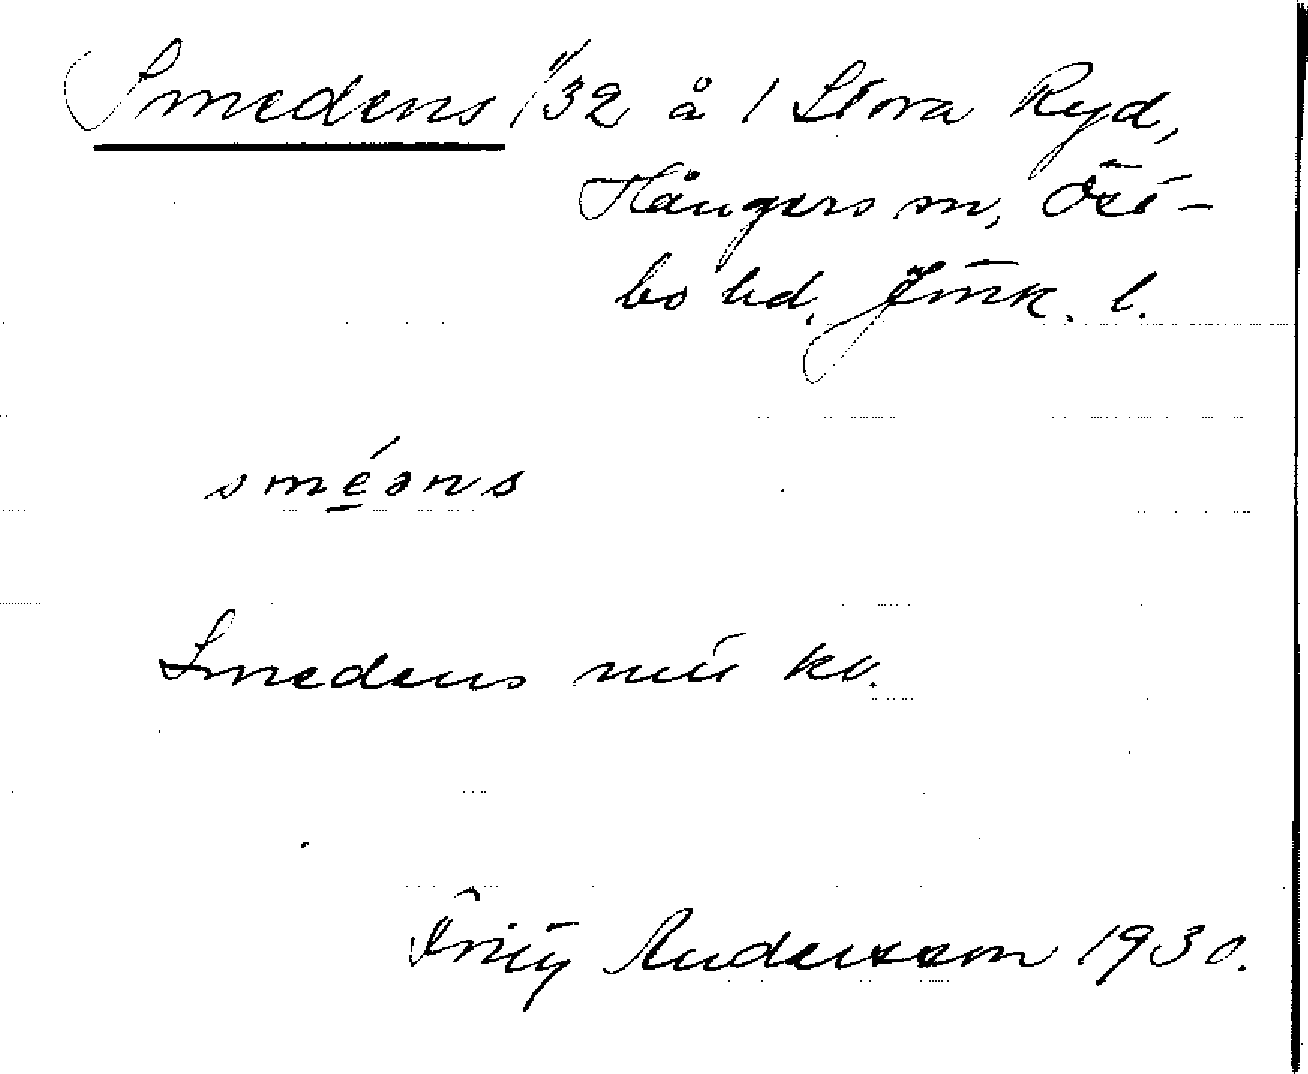 Smedens 1/32 å 1 Stora Ryd,
Hångers sn, Öst-
bo hd. Jönk. l.
sméəns
Smedens
Fritz Andersson 1930.